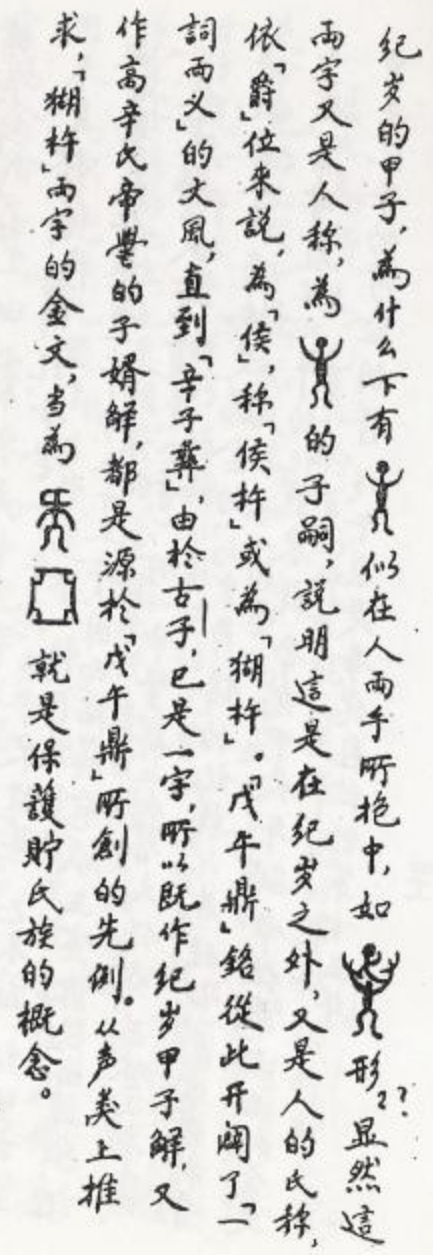 纪岁的甲子，為什么下有 似在人両手所抱中，如 形？？显然這
両字又是人称，為 的子嗣，説明這是在纪岁之外，又是人的氏称，
依「爵」位來説，為「侯」，称「侯杵」或為「猢杵」。「戊午鼎」銘從此开闢了「一
詞両义」的文風，直到「辛子彝」，由於古子，巳是一字，所以既作纪岁甲子解，又
作高辛氏帝嚳的子婿解，都是源於「戊午鼎」所創的先例。从声类上推
求，「猢杵」両字的金文，当為 就是保護貯氏族的概念。